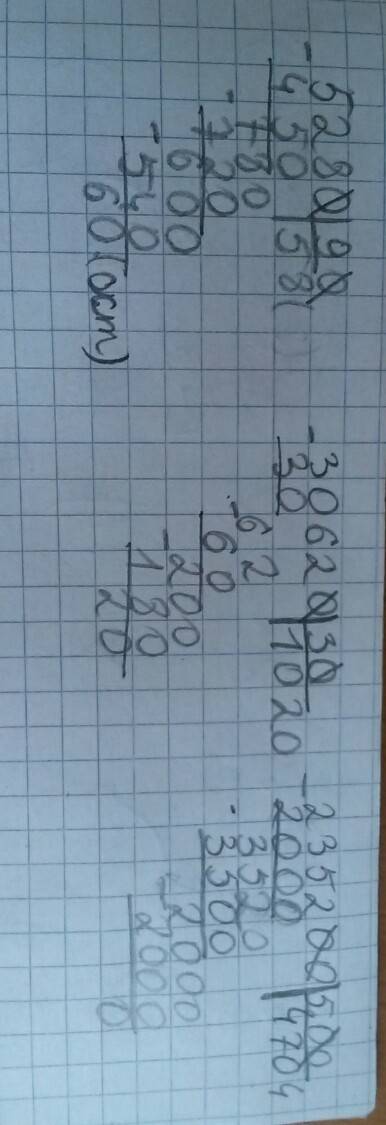 -5280|90
450|58(
780
-720
600
-540
60(ост)
-30620|30
30|1020
-62
60
-200
180
20
-235200|500
2000|4704
3520
-3500
-2000
2000
0